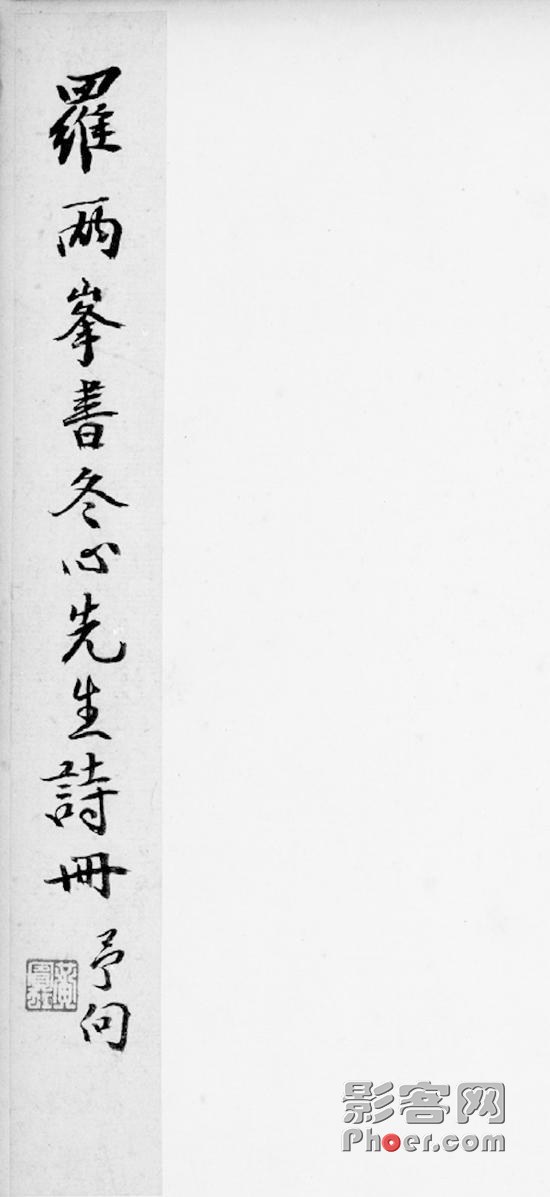 羅兩峯書冬心先生詩冊
予向
影客网
Phoer.com